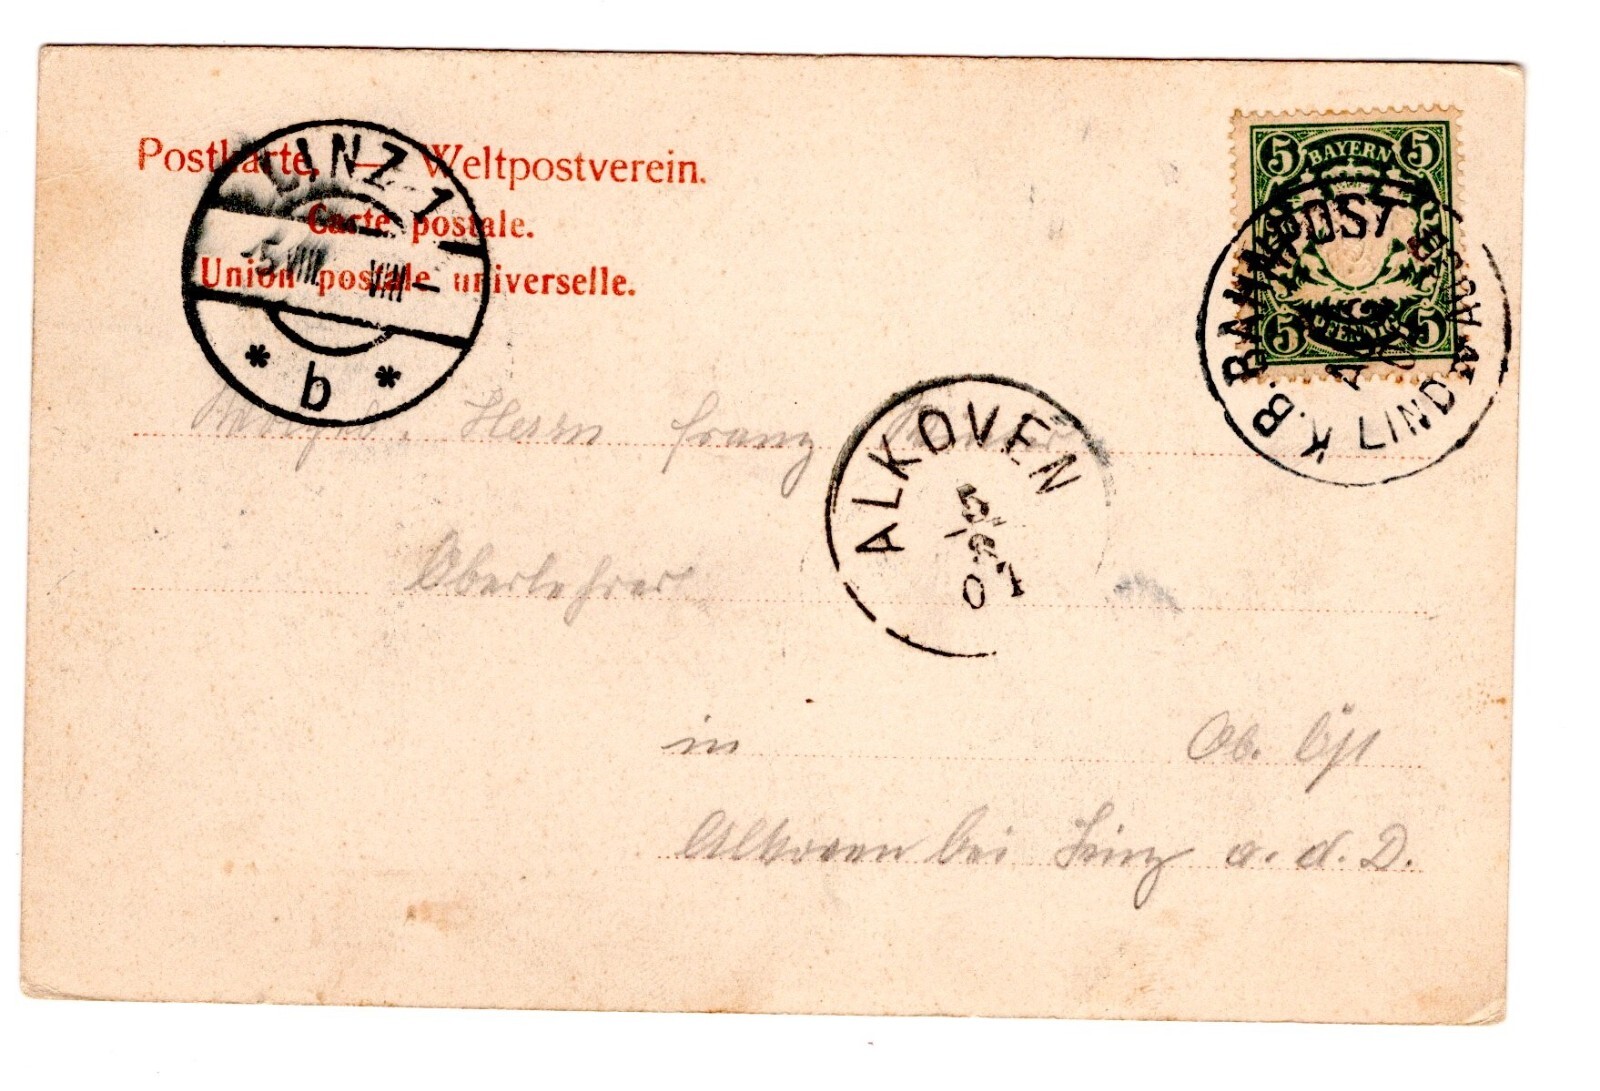 Postkarte. — Weltpostverein.
Carte postale.
Union postale universelle.
LINZ 1
5 VIII VIII
* b *
5 BAYERN 5
5 PFENNIG 5
K.B. BAHNPOST
LINDAU
ALKOVEN
5.
8
07
Herrn Franz
Oberlehrer
in Ob. Öst
Alkoven bei Linz a. d. D.